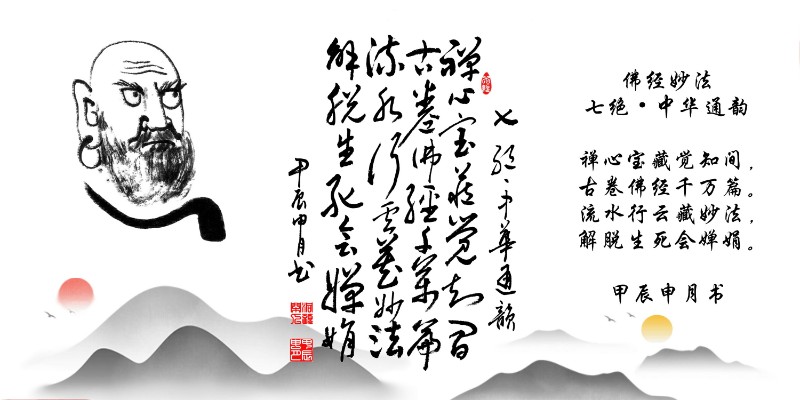 七绝·中華通韻
禅心宝藏觉知间
古卷佛經千萬篇
流水行雲藏妙法
解脱生死会婵娟
甲辰申月书
佛经妙法
七绝·中华通韵
禅心宝藏觉知间，
古卷佛经千万篇。
流水行云藏妙法，
解脱生死会婵娟。
甲辰申月书